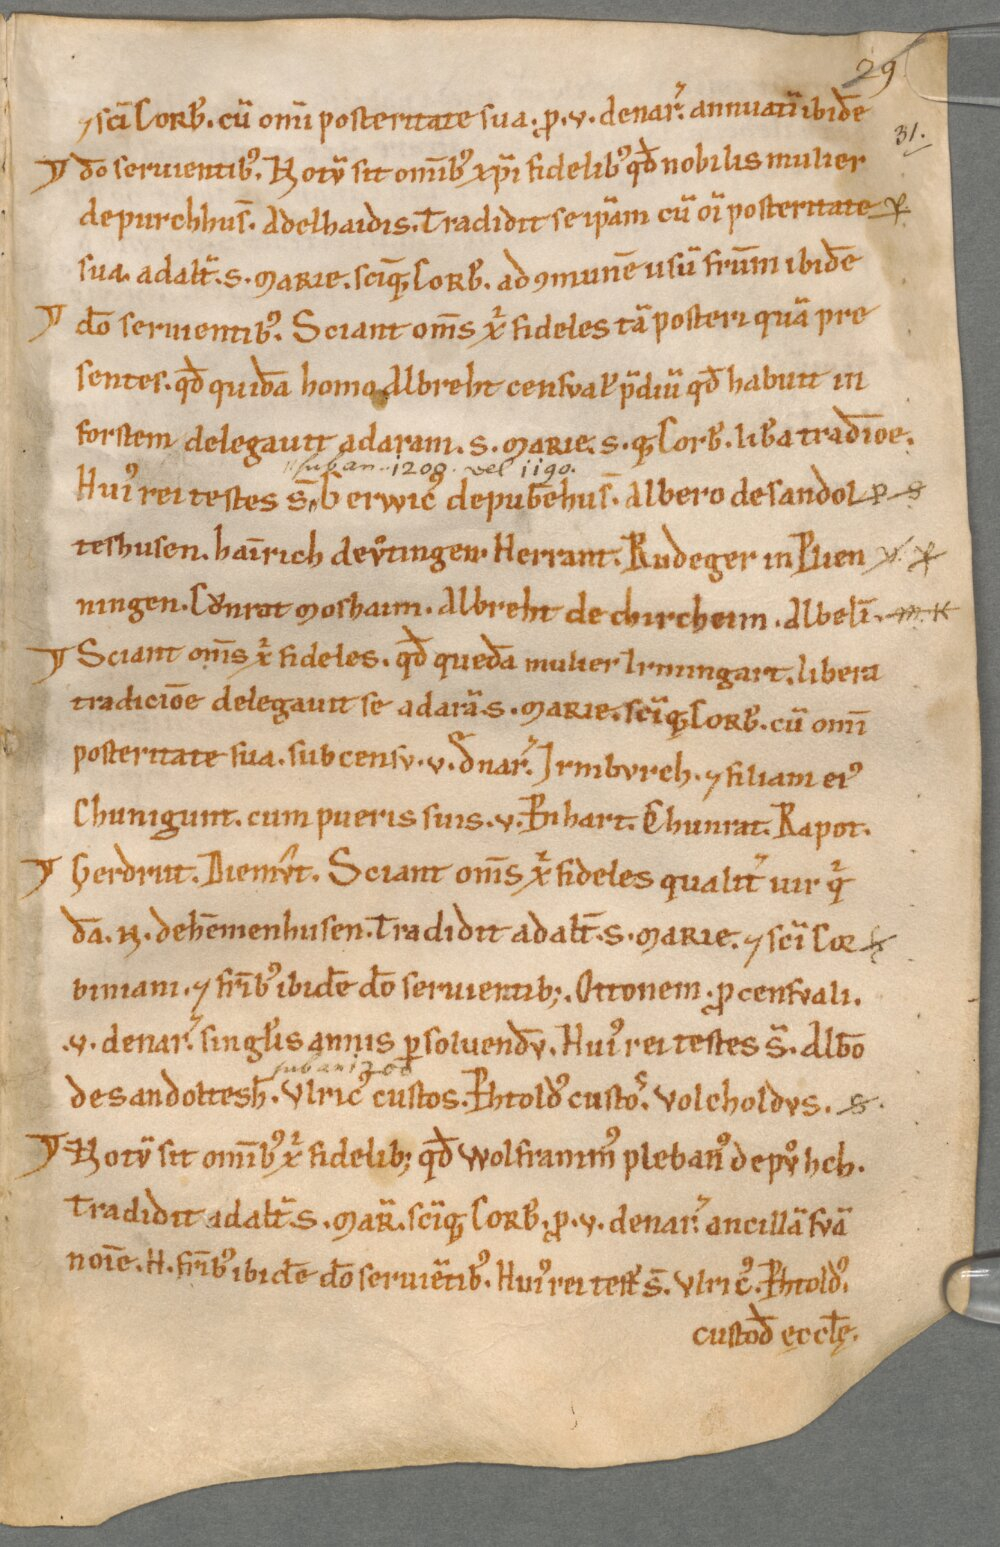 29
⁊ sc̄i Corb̄. cū om̄i posteritate sua. ꝓ .v. denar̄. annuatī ibidē
31.
dō seruientib᷒. Notū sit om̄ib᷒ xp̄i fidelib᷒ qđ nobilis mulier
de purchhus̄. Adelhaidis. Tradidit se ip̄am cū oī posteritate
sua. ad alt̄. s. MARIE. sc̄iq̨ CORB̄. ad ꝯmunē usū fr̄m ibidē
dō seruientib᷒. Sciant om̄s x̄ fideles tā posteri quā pre
sentes. qđ quidā homo Albreht censual̄ p̄diū qđ habuit in
forstern delegauit ad aram. s. MARIE. s. q̨ Corb̄. lib̄a tradiōe.
sub an. 1200. vel 1190.
Hui᷒ rei testes s̄. Gerwic᷒ de pub̄ehus̄. Albero de sandol
teshusen. hainrich de vͦtingen. Herrant. Rudeger in Plien
ningen. Cͦvnrat moshaim. Albreht de chircheim. Albel̄i.
Sciant om̄s x̄ fideles. qđ quedā mulier Irmingart. libera
tradiciōe delegauit se ad arā. s. MARIE. sc̄iq̨ CORB̄. cū om̄i
posteritate sua. sub censv. v. dnar̄. Irmbvrch. ⁊ filiam ei᷒
Chunigunt. cum pueris suis. v. Ꝑnhart. Chunrat. Rapot.
Gerdrut. Diemvͦt. Sciant om̄s x̄ fideles qualit̄ uir q̄
dā. N. de hēmenhusen. Tradidit ad alt̄. s. MARIE. ⁊ sc̄i Cor
biniani. ⁊ fr̄ib᷒ ibidē dō seruientib;. Ottonem. ꝓ censuali.
.v. denar̄. singl̄is annis ꝑsoluendv̄. Hui᷒ rei testes s̄. Alb̄o
sub an 1200
de sandoltesh̄. Vlric᷒ custos. Ꝑhtold᷒ custos. Volcholdvs.
Notū sit om̄ib᷒ x̄ fidelib; qđ Wolframm᷒ pleban᷒ de pvͦhch.
Tradidit ad alt̄. s. MAR̄. sc̄iq̨ CORB̄. ꝓ .v. denar̄. ancillā suā
noīe. H. fr̄ib᷒ ibidē dō seruiētib᷒. Hui᷒ rei test̄ s̄. Vlric᷒. Ꝑhtold᷒.
custod̄ ęccl̄ę.